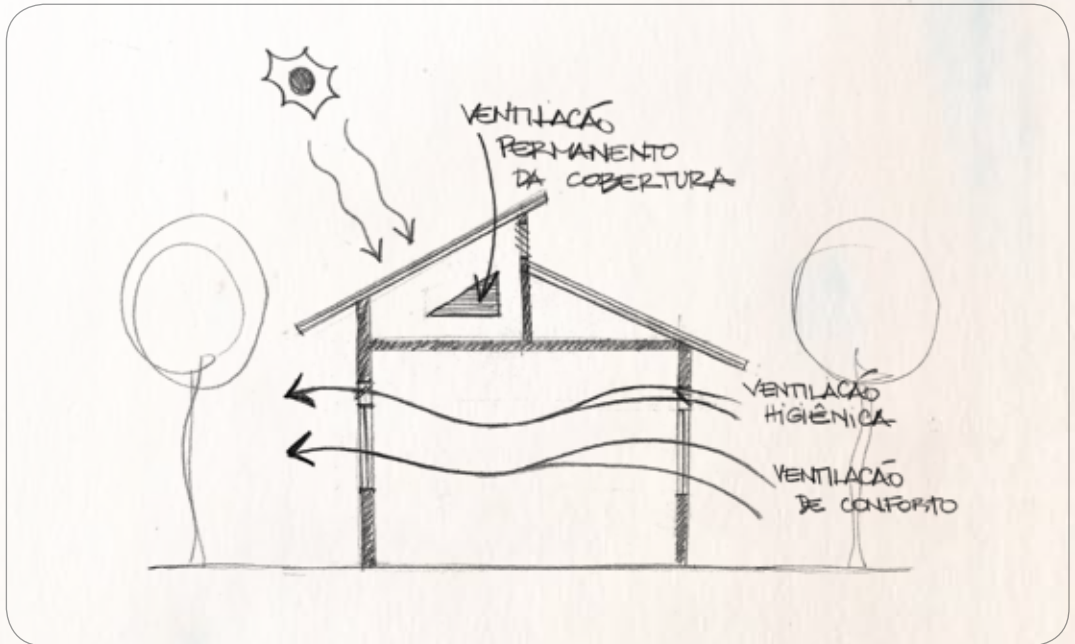 VENTILAÇÃO
PERMANENTO
DA COBERTURA
VENTILAÇÃO
HIGIÊNICA
VENTILAÇÃO
DE CONFORTO